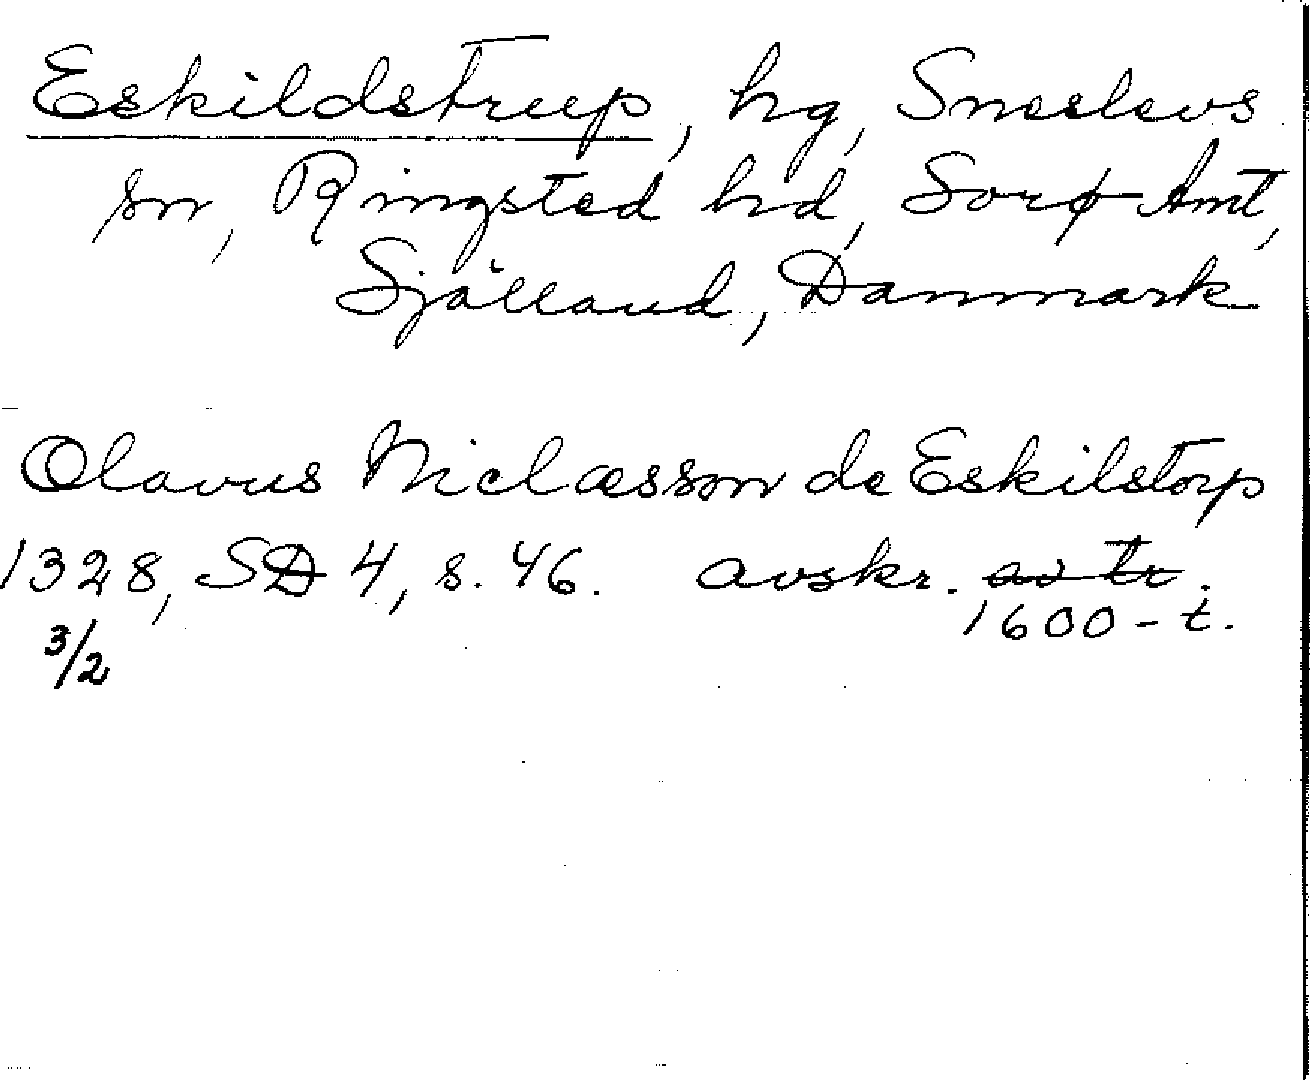 Eskildstrup, hg, Sneslevs
sn, Ringsted hd, Sorø Amt,
Själland, Danmark
Olavus Niclæsson de Eskilstorp
1328, SD 4, s. 46. avskr. av tr.
1600-t.
3/2